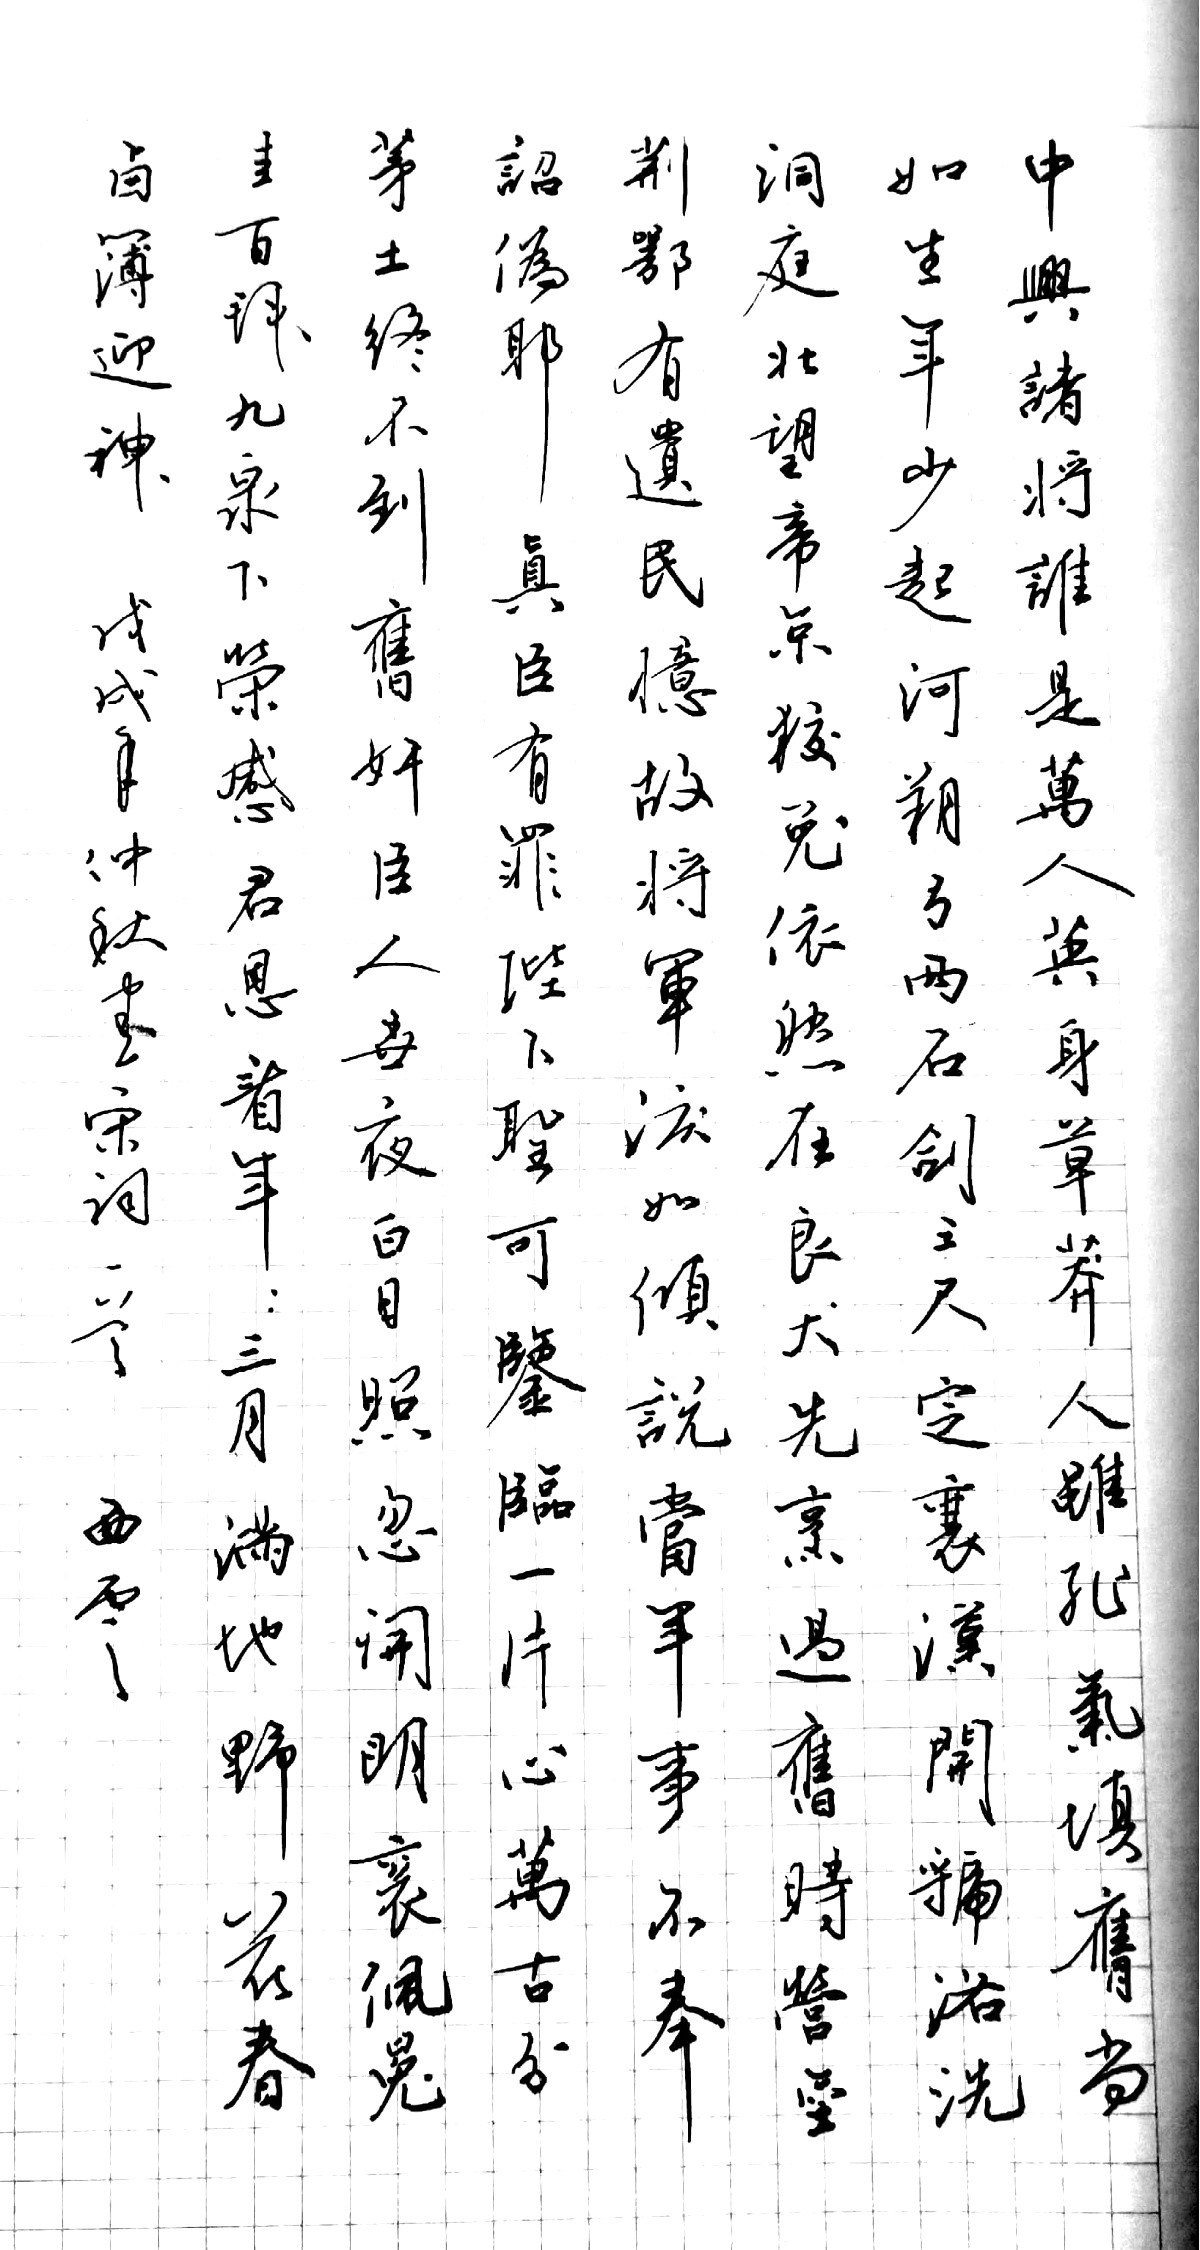 中興諸将誰是萬人英身草莽人雖死氣填膺尚
如生年少起河朔弓兩石劍三尺定襄漢開虢洛洗
洞庭北望帝京狡兔依然在良犬先烹過舊時營壘
荆鄂有遺民憶故将軍淚如傾說當年事不奉
詔偽耶真臣有罪陛下聖可鑒臨一片心萬古分
茅土終不到舊奸臣人世夜白日照忽開明衮佩冕
圭百拜九泉下榮感君恩看年:三月滿地野花春
卤簿迎神 戊戌年仲秋書宋詞一首 西雲